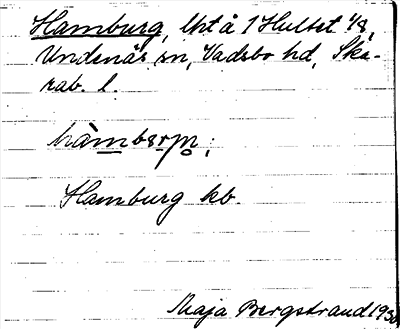 Hamburg, lht å 1 Hultet 1/8,
Undenäs sn, Vadsbo hd, Ska-
rab. l.
hàmbærjɷ;
Hamburg kb.
Maja Bergstrand 193